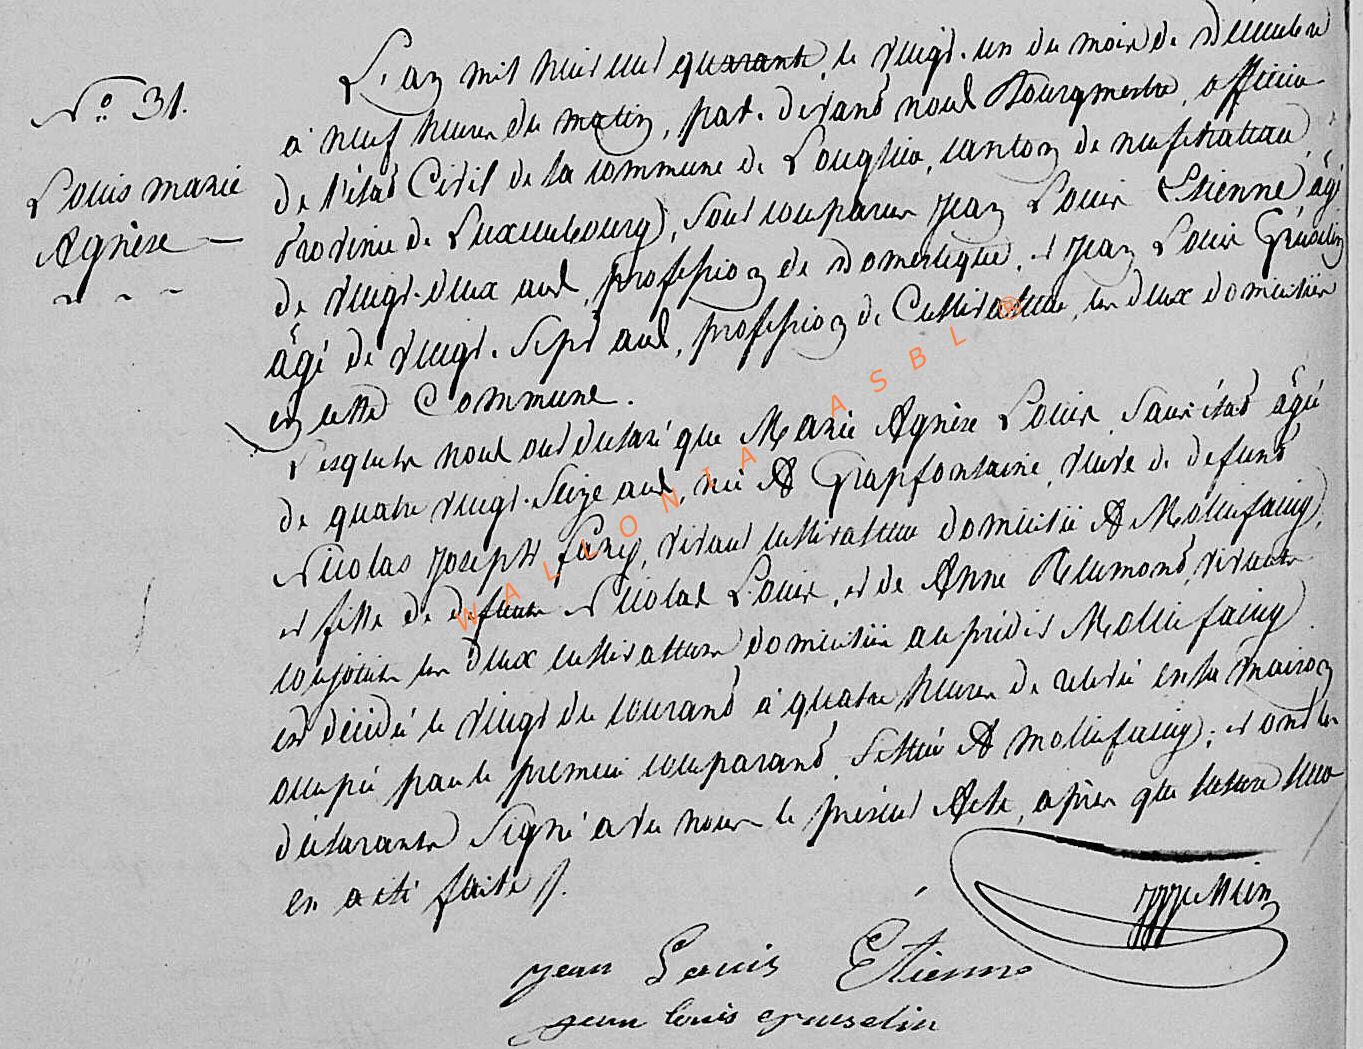 L'an mil huit cent quarante, le vingt-un du mois de décembre
N° 31.
à neuf heures du matin, par-devant nous Bourgmestre, officier
de l'état Civil de la commune de Longlier, canton de neufchateau,
Louis marie
Province de Luxembourg, sont comparus jean Louis Etienne âgé
Agnèse —
de vingt-deux ans, profession de domestique, et jean Louis Gruselin
âgé de vingt-sept ans, profession de Cultivateur, les deux domiciliés
en cette Commune.
Lesquels nous ont déclaré que Marie Agnèse Louis, sans état âgée
de quatre vingt-seize ans, née à Grapfontaine, veuve de défunt
Nicolas joseph, vivant cultivateur domicilié à Mollefaing,
et fille de défunts Nicolas Louis, et de Anne, vivants
conjoints les deux cultivateurs domiciliés au prédit Mollefaing
est décédé le vingt du courant à quatre heures de relevée en la maison
occupée par le premier comparant, sittuée à mollefaing; et ont les
déclarants signé avec nous le présent Acte, après que lecture leur
en a été faite.
jean Louis Etienne
jean louis gruselin
WALLONIA ASBL ®